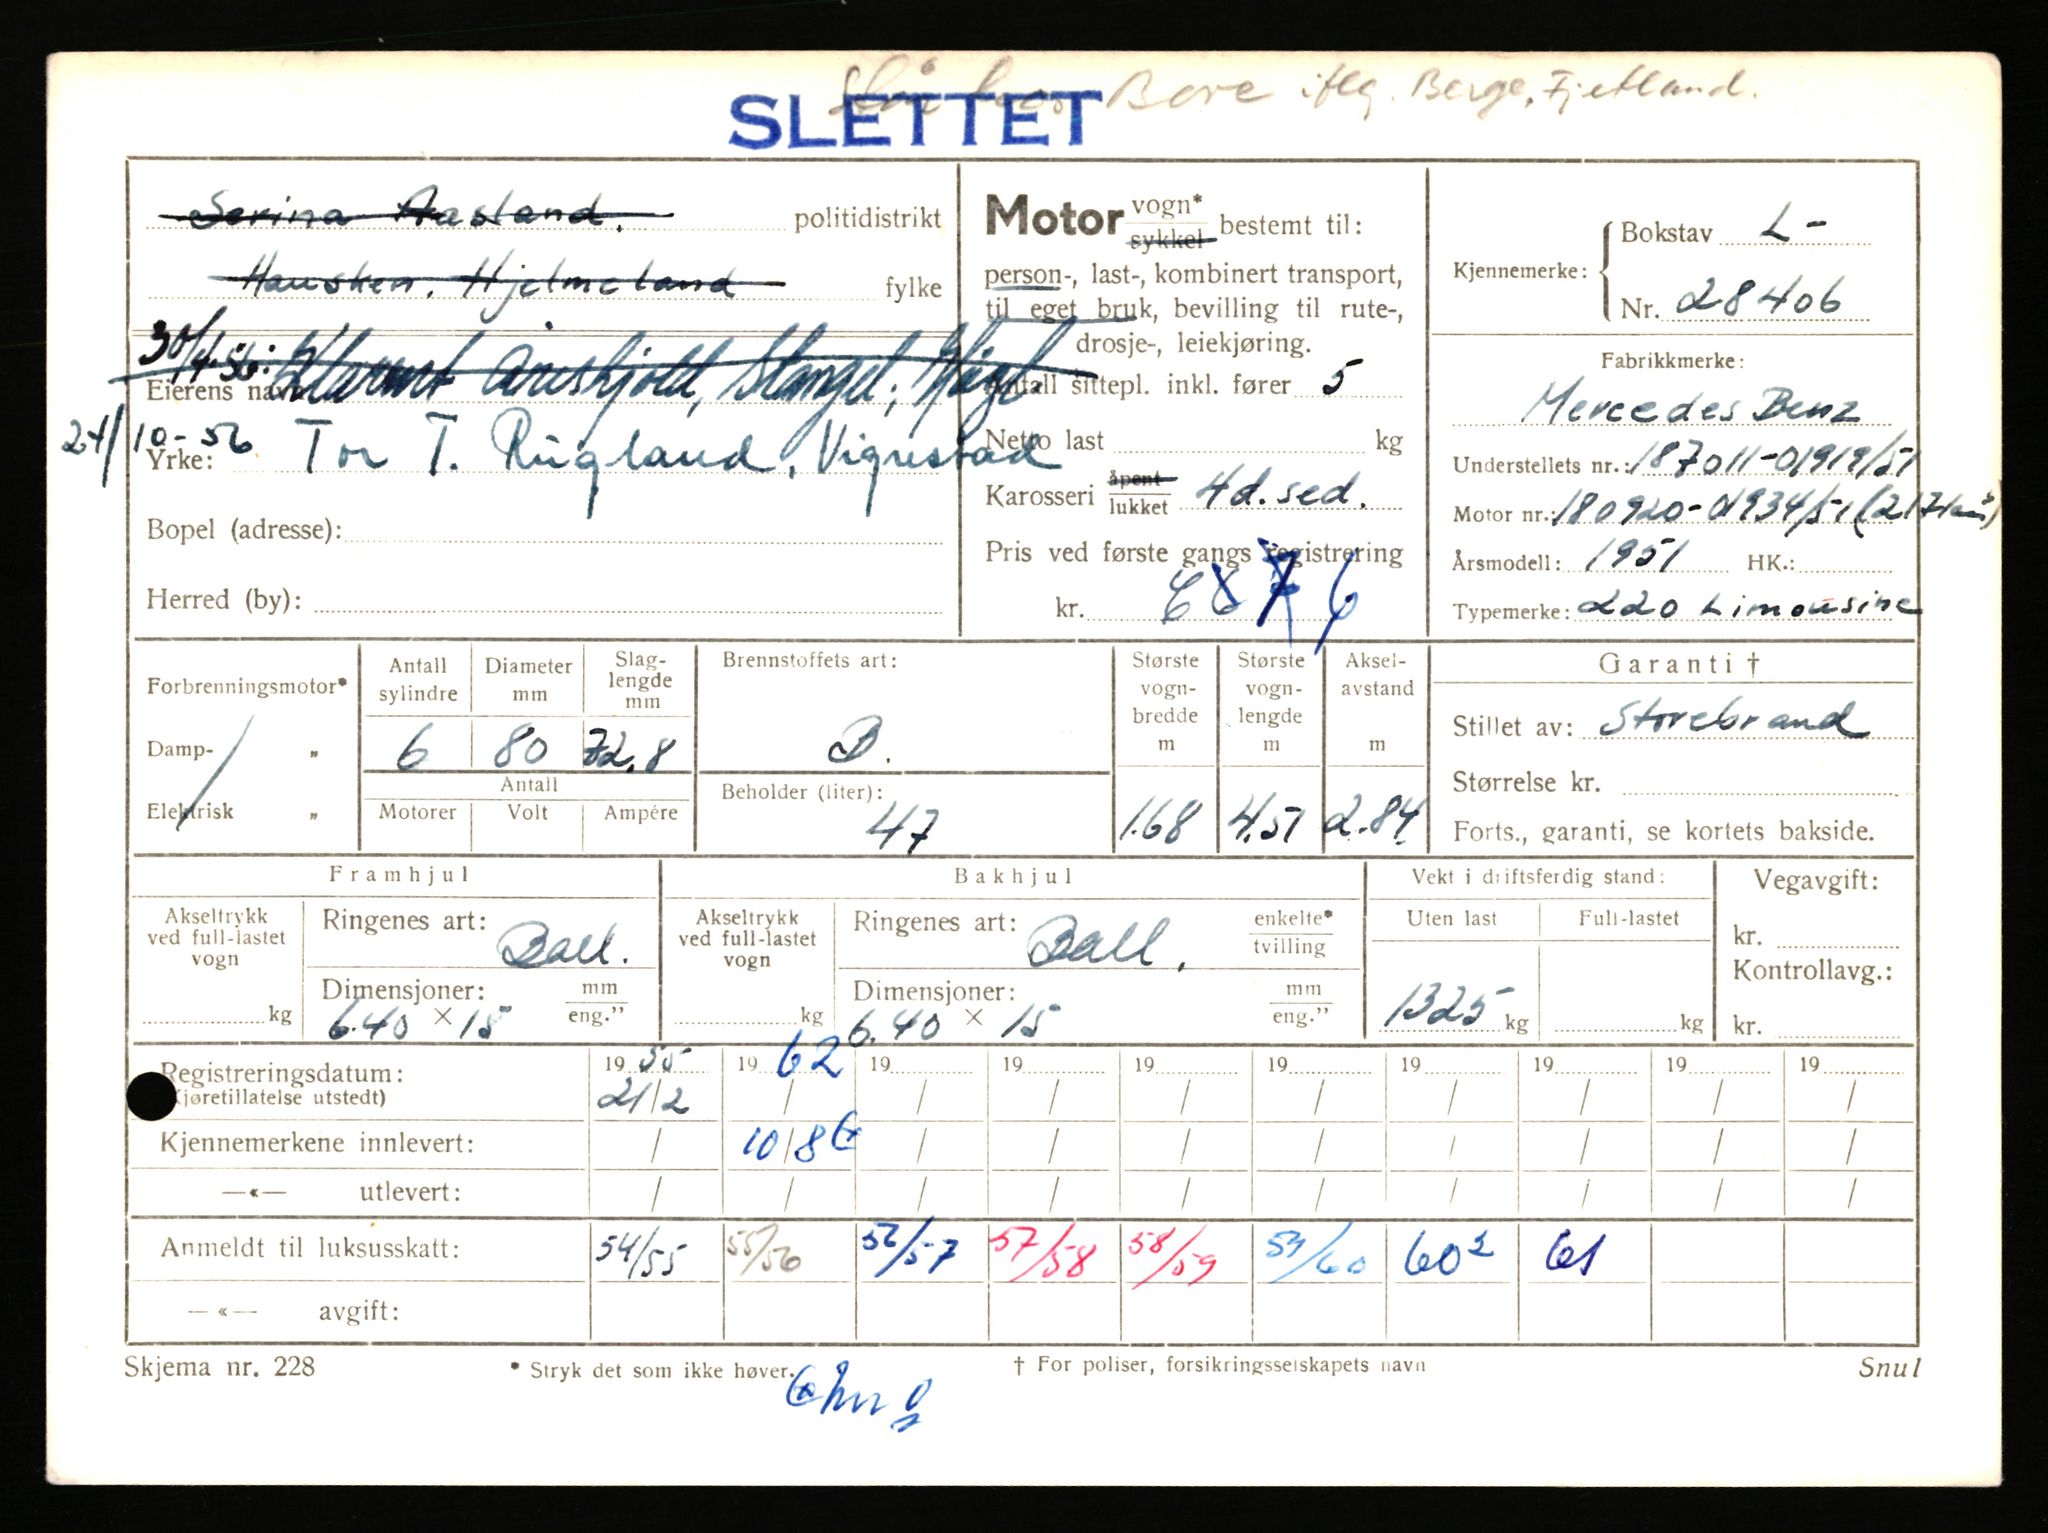 Bore iflg. Berge, Fjetland.
SLETTET
Serina Aasland. politidistrikt
Hausken. Hjelmeland fylke
30/4-56:
Eierens navn
24/10-56 Tor T. Rugland, Vigrestad
Yrke:
Bopel (adresse):
Herred (by):
Motor vogn* sykkel bestemt til:
person-, last-, kombinert transport,
til eget bruk, bevilling til rute-,
drosje-, leiekjøring.
Antall sittepl. inkl. fører 5
Netto last kg
Karosseri åpent lukket 4d. sed.
Pris ved første gangs registrering
kr.
Kjennemerke: Bokstav L-
Nr. 28406
Fabrikkmerke:
Mercedes Benz
Understellets nr.: 187011-01919/51
Motor nr.: 180920-01934/51
Årsmodell: 1951 HK.:
Typemerke: 220 Limousine
Forbrenningsmotor*
Damp- „
Elektrisk „
Antall sylindre 6
Diameter mm 80
Slag-lengde mm 72.8
Antall
Motorer Volt Ampére
Brennstoffets art:
B.
Beholder (liter):
47
Største vogn-bredde m 1.68
Største vogn-lengde m 4.51
Aksel-avstand m 2.84
Garanti †
Stillet av: Storebrand
Størrelse kr.
Forts., garanti, se kortets bakside.
Framhjul
Akseltrykk ved full-lastet vogn kg
Ringenes art: Ball.
Dimensjoner: mm eng."
6.40 × 15
Bakhjul
Akseltrykk ved full-lastet vogn kg
Ringenes art: Ball. enkelte* tvilling
Dimensjoner: mm eng."
6.40 × 15
Vekt i driftsferdig stand:
Uten last Full-lastet
1325 kg kg
Vegavgift:
kr.
Kontrollavg.:
kr.
Registreringsdatum: 1955 1962 19 19 19 19 19 19 19 19
(Kjøretillatelse utstedt) 21/2 / / / / / / / / /
Kjennemerkene innlevert: / 10/8 / / / / / / / /
—«— utlevert: / / / / / / / / / /
Anmeldt til luksusskatt: 54/55 55/56 56/57 57/58 58/59 59/60 60² 61
—«— avgift:
Skjema nr. 228 * Stryk det som ikke høver. † For poliser, forsikringsselskapets navn Snul